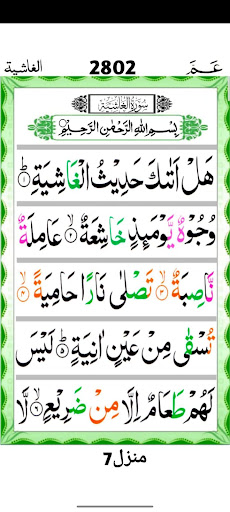 الغاشية 2802 عَمَّ
سُوْرَةُ الْغَاشِيَةِ
بِسْمِ اللهِ الرَّحْمٰنِ الرَّحِيْمِ
هَلْ اَتٰىكَ حَدِيْثُ الْغَاشِيَةِ ۝١
وُجُوْهٌ يَّوْمَئِذٍ خَاشِعَةٌ ۝٢ عَامِلَةٌ
نَّاصِبَةٌ ۝٣ تَصْلٰى نَارًا حَامِيَةً ۝٤
تُسْقٰى مِنْ عَيْنٍ اٰنِيَةٍ ۝٥ لَيْسَ
لَهُمْ طَعَامٌ اِلَّا مِنْ ضَرِيْعٍ ۝٦ لَّا
منزل7